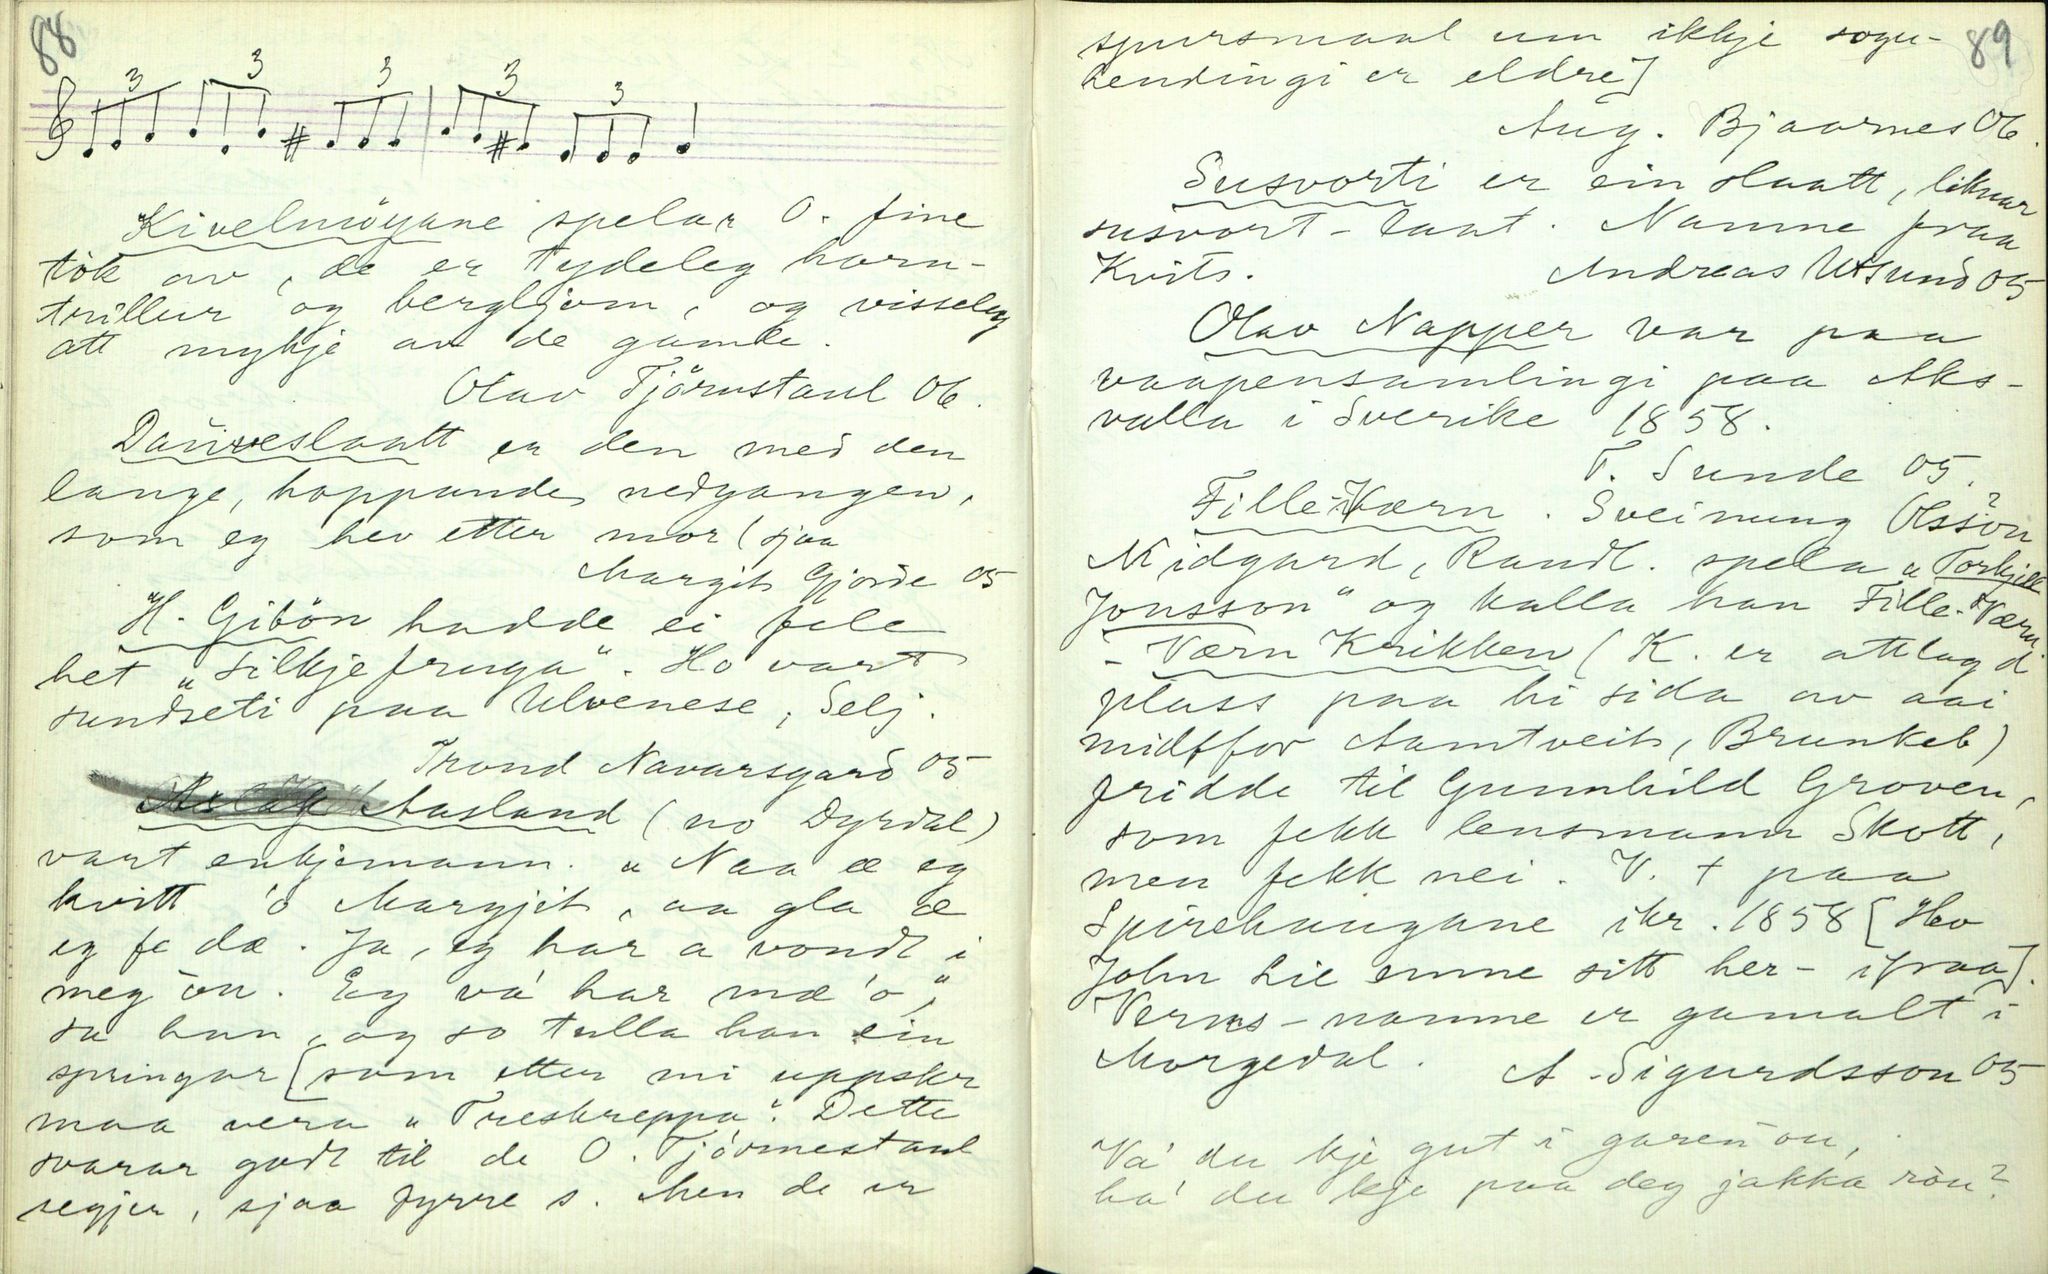 88
3 3 3 3 3
"Kivelmöyane spelar O. fine
tök av, de er tydeleg horn-
trillur og bergljom, og visseleg
att mykje av de gamle.
Olav Tjörnstaul 06.
Danseslaatt er den med den
lange, hoppande nedgangen,
som eg hev etter mor (sjaa
Margit Gjorde 05
H. Gibön hadde ei fele
het „Silkjefruga“. Ho vart
sundseti paa Ulvenese, Selj.
Trond Navarsgard 05
Aslak Aasland (no Dyrdal)
vart enkjemann. „Naa æ eg
kvitt 'o Margjit, aa gla æ
eg fe dæ. Ja, eg har a vondt i
meg ön. Eg va' har mæ 'o“,
sa han, og so tulla han ein
springar [som etter mi uppskr
maa vera „Treskreppa“. Dette
svarar godt til de O. Tjörnestaul
segjer, sjaa fyrre s. Men de er
89
spursmaal um ikkje sogu-
hendingi er eldre]
Aug. Bjaarnes 06.
Susvorti er ein slaatt, liknar
susvort-laat. Namne fraa
Kvits.
Andreas Utsund 05
Olav Napper var paa
vaapensamlingi paa Aks-
valla i Sverike 1858.
T. Sunde 05.
Fille-Værn. Sveinung Olsson?
Midgard, Randl. spela „Torkjell
Jonsson“ og kalla han Fille-Værn
- Værn Krikken (K. er attlagd
plass paa hi sida av aai
midtfor Aamtveit, Brunkeb)
fridde til Gunnhild Groven,
som fekk lensmann Skott,
men fekk nei. V. + paa
Spirehaugane ikr. 1858 [Hev
John Lie emne sitt her- ifraa].
Verns-namne er gamalt i
Morgedal.
A. Sigurdsson 05
Va' du kje gut i garen ön,
ha' du kje paa deg jakka rön?